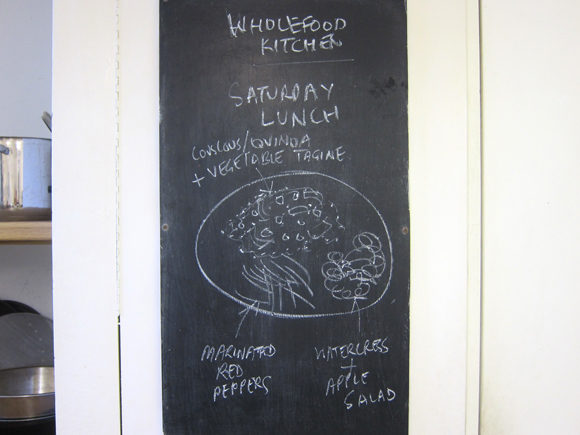 WHOLEFOOD
KITCHEN
SATURDAY
LUNCH
COUSCOUS/QUINOA
+ VEGETABLE TAGINE
MARINATED
RED
PEPPERS
WATERCRESS
+
APPLE
SALAD